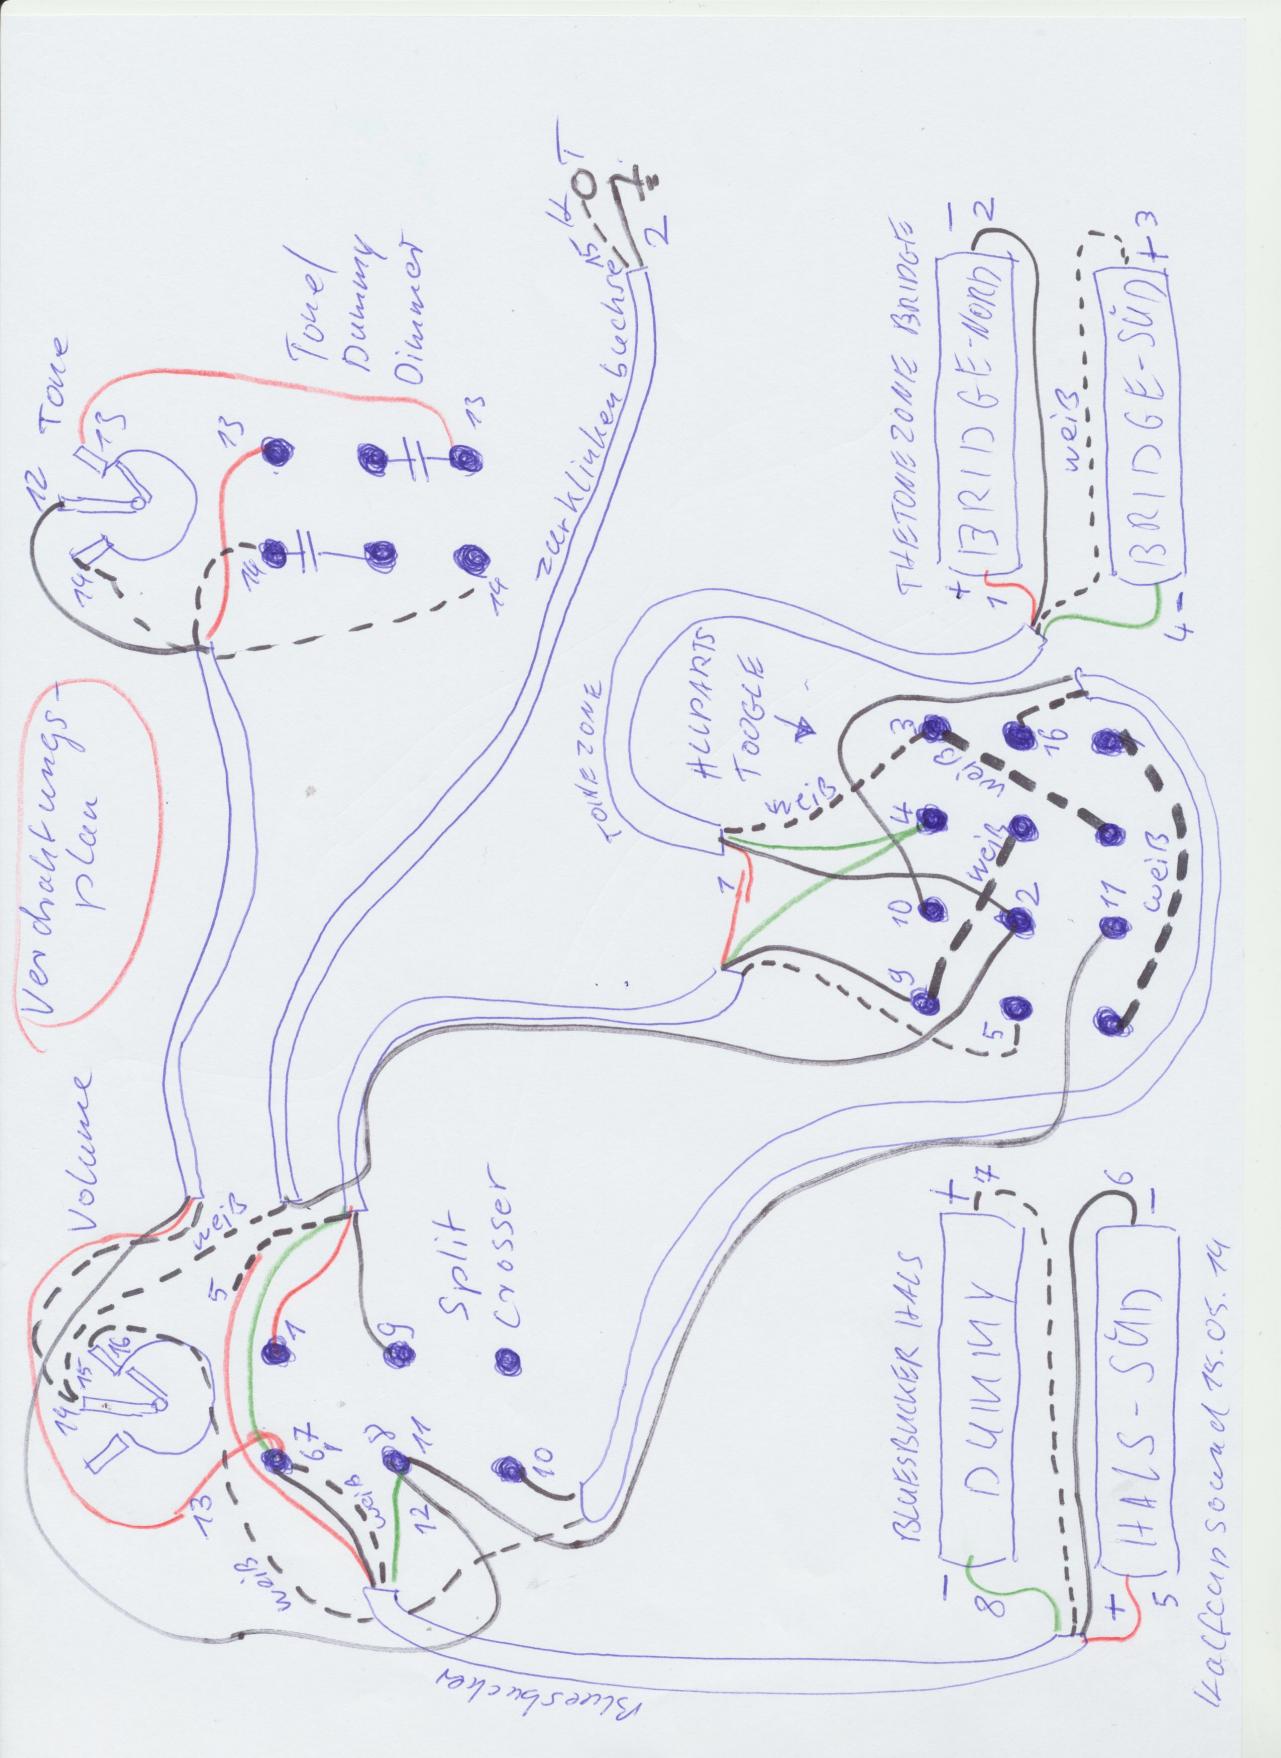 Verdrahtungs-
plan
Volume
weiß
14
15
16
5
1
9
6,7
8
11
12
10
13
weiß
weiß
Split
Crosser
Bluesbucker
Tone
12
13
14
13
14
13
14
Tone/
Dummy
Dimmer
zur Klinkenbuchse
15
T
2
TONEZONE
ALLPARTS
TOGGLE
1
weiß
3
4
10
9
16
2
5
11
weiß
weiß
weiß
THETONEZONE BRIDGE
+
1
BRIDGE-NORD
-
2
weiß
4 -
BRIDGE-SÜD
+ 3
BLUESBUCKER HALS
-
8
DUMMY
+
7
+
5
HALS-SÜD
6
-